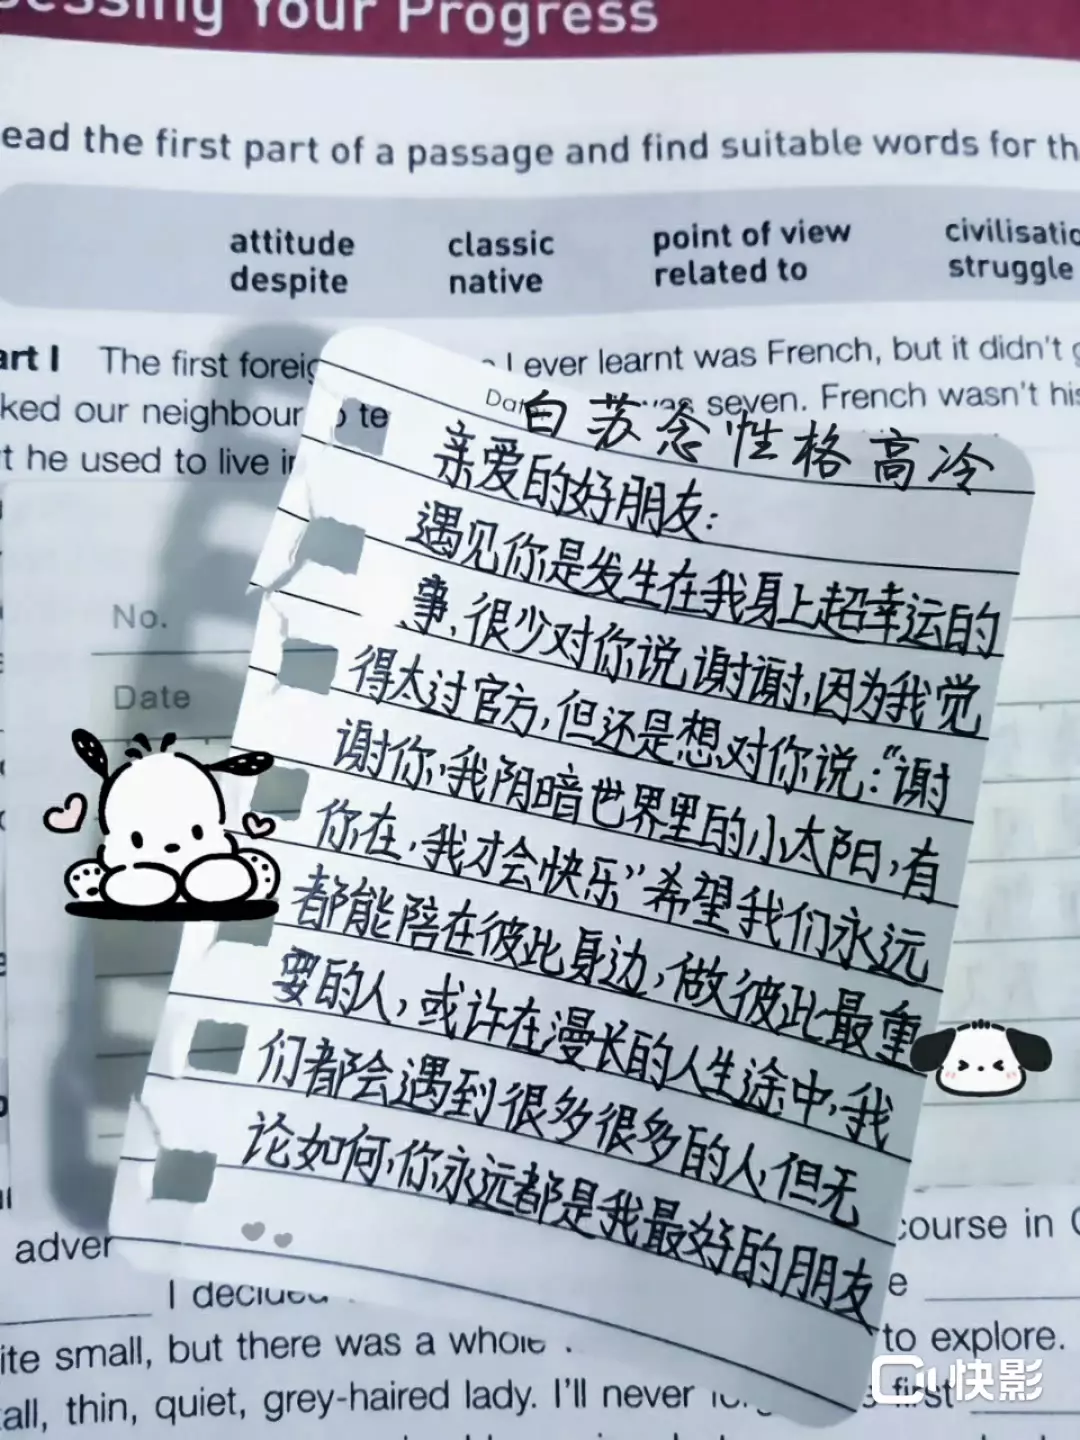 essing Your Progress
ead the first part of a passage and find suitable words for th
attitude classic point of view civilisatio
despite native related to struggle
art I The first foreig I ever learnt was French, but it didn't g
ked our neighbour to te was seven. French wasn't his
t he used to live in
Date
白苏念性格高冷
亲爱的好朋友:
遇见你是发生在我身上超幸运的
事,很少对你说谢谢,因为我觉
得太过官方,但还是想对你说:“谢
谢你,我阴暗世界里的小太阳,有
你在,我才会快乐”希望我们永远
都能陪在彼此身边,做彼此最重
要的人,或许在漫长的人生途中,我
们都会遇到很多很多的人,但无
论如何,你永远都是我最好的朋友
No.
Date
adver course in
I decided e
ite small, but there was a whole to explore.
all, thin, quiet, grey-haired lady. I'll never first
快影